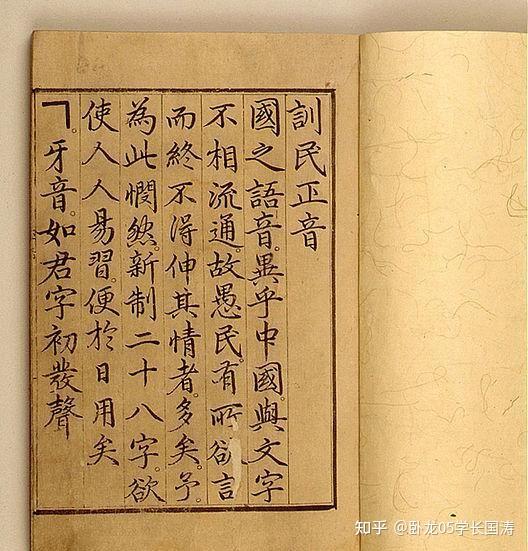 訓民正音
國之語音。異乎中國。與文字
不相流通。故愚民。有所欲言
而終不得伸其情者。多矣。予。
為此憫然。新制二十八字。欲
使人人易習。便於日用矣
ㄱ。牙音。如君字初發聲
知乎 @卧龙05学长国涛